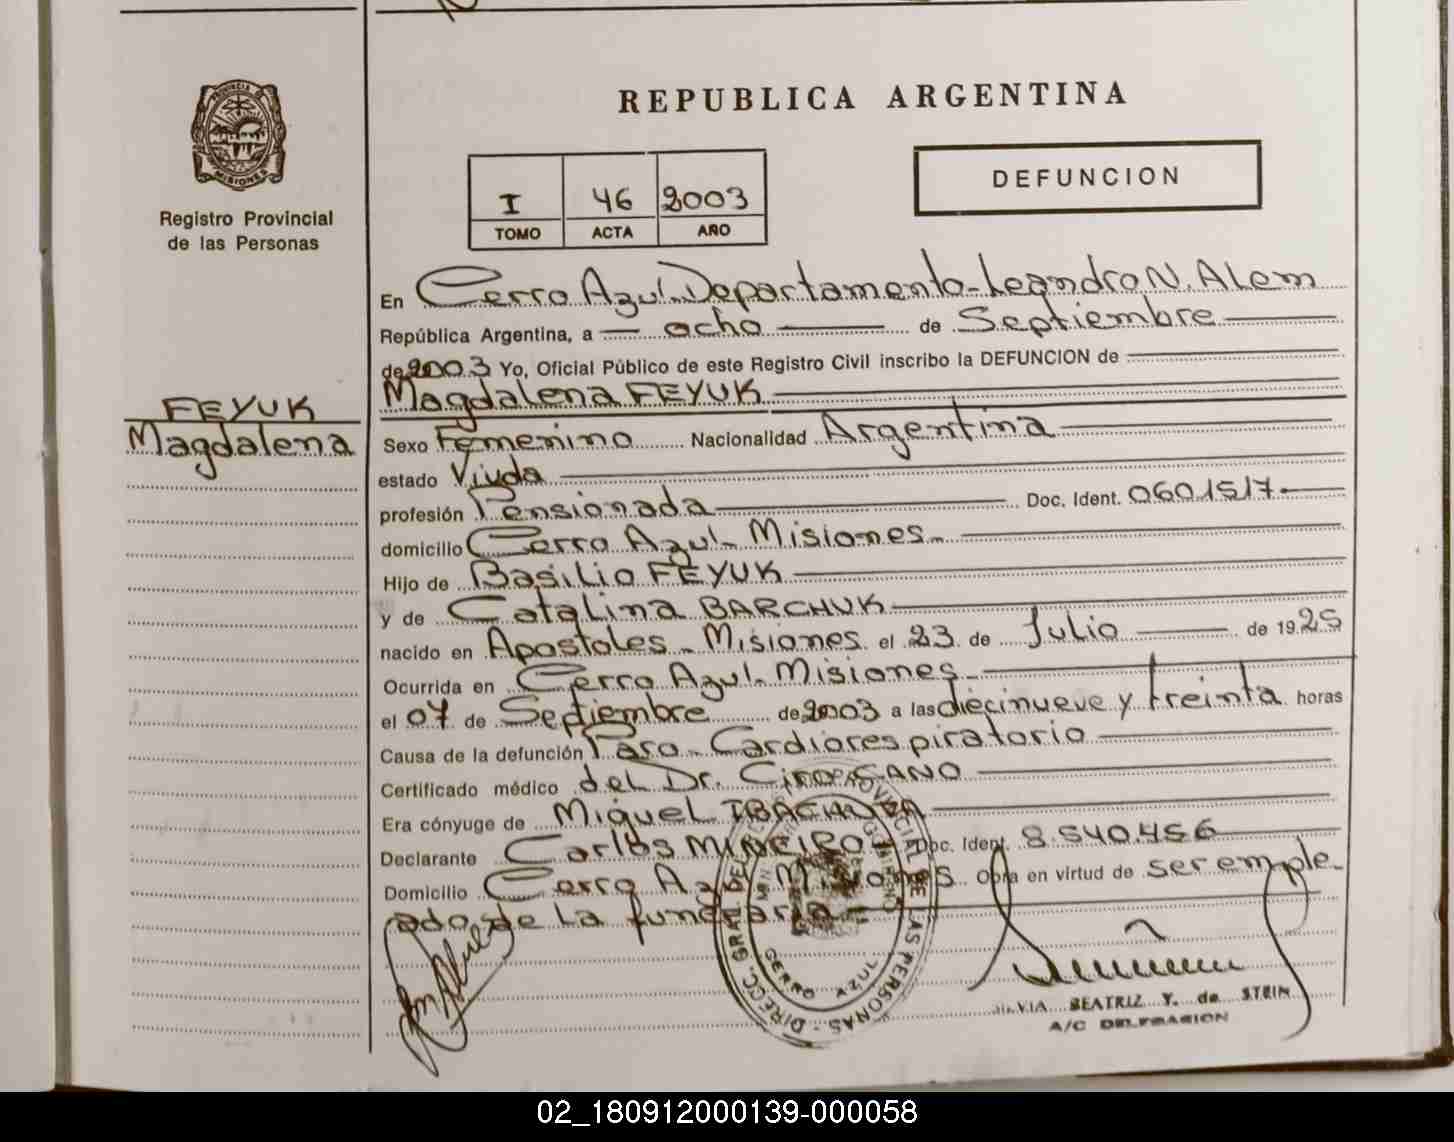 REPUBLICA ARGENTINA
PROVINCIA DE
MISIONES
Registro Provincial
de las Personas
I 46 2003
TOMO ACTA AÑO
DEFUNCION
En Cerro Azul. Departamento-Leandro N. Alem
República Argentina, a ocho de Septiembre
de 2003 Yo, Oficial Público de este Registro Civil inscribo la DEFUNCION de
Magdalena FEYUK
FEYUK
Magdalena
Sexo Femenino Nacionalidad Argentina
estado Viuda
profesión Pensionada Doc. Ident. 0601517
domicilio Cerro Azul- Misiones-
Hijo de Basilio FEYUK
y de Catalina BARCHUK
nacido en Apostoles- Misiones el 23 de Julio de 1925
Ocurrida en Cerro Azul- Misiones-
el 07 de Septiembre de 2003 a las diecinueve y treinta horas
Causa de la defunción Paro- Cardiorespiratorio
Certificado médico del Dr.
Era cónyuge de Miguel
Declarante Carlos Doc. Ident. 8.540.456
Domicilio Cerro Azul Misiones Obra en virtud de ser emple-
ado de la funeraria
DIRECC. GRAL. DEL PROVINCIAL DE LAS PERSONAS
CERRO AZUL
BEATRIZ Y. de STEIN
A/C DELEGACION
02_180912000139-000058